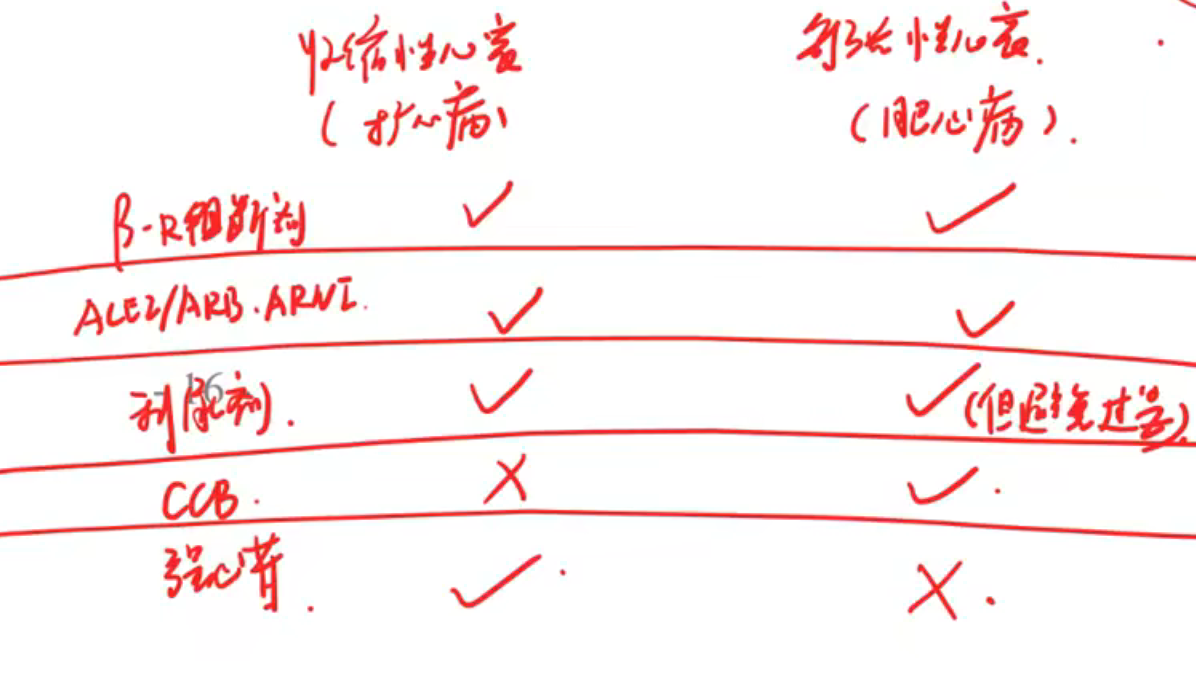 收缩性心衰 舒张性心衰.
(扩心病) (肥心病).
β-R阻断剂 ✓ ✓
ACEI/ARB.ARNI. ✓ ✓
利尿剂. ✓ ✓(但避免过量)
16
CCB. X ✓.
强心苷. ✓. X.